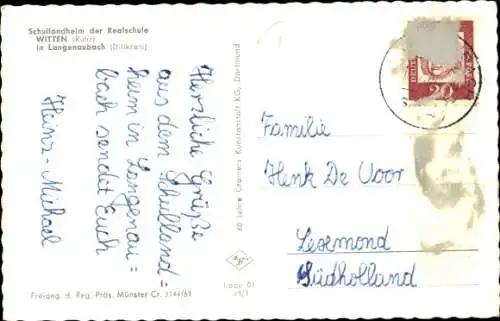 Schullandheim der Realschule
WITTEN (Ruhr)
in Langenaubach (Dillkreis)
Herzliche Grüße
aus dem Schulland=
heim in Langenau=
bach sendet Euch
Heinz-Michael
Freigng. d. Reg.-Präs. Münster Cr. 3744/61
60 Jahre Cramers Kunstanstalt KG, Dortmund
Laau 01
Familie
Henk De Voor
Lesemond
Südholland
DEUT
20